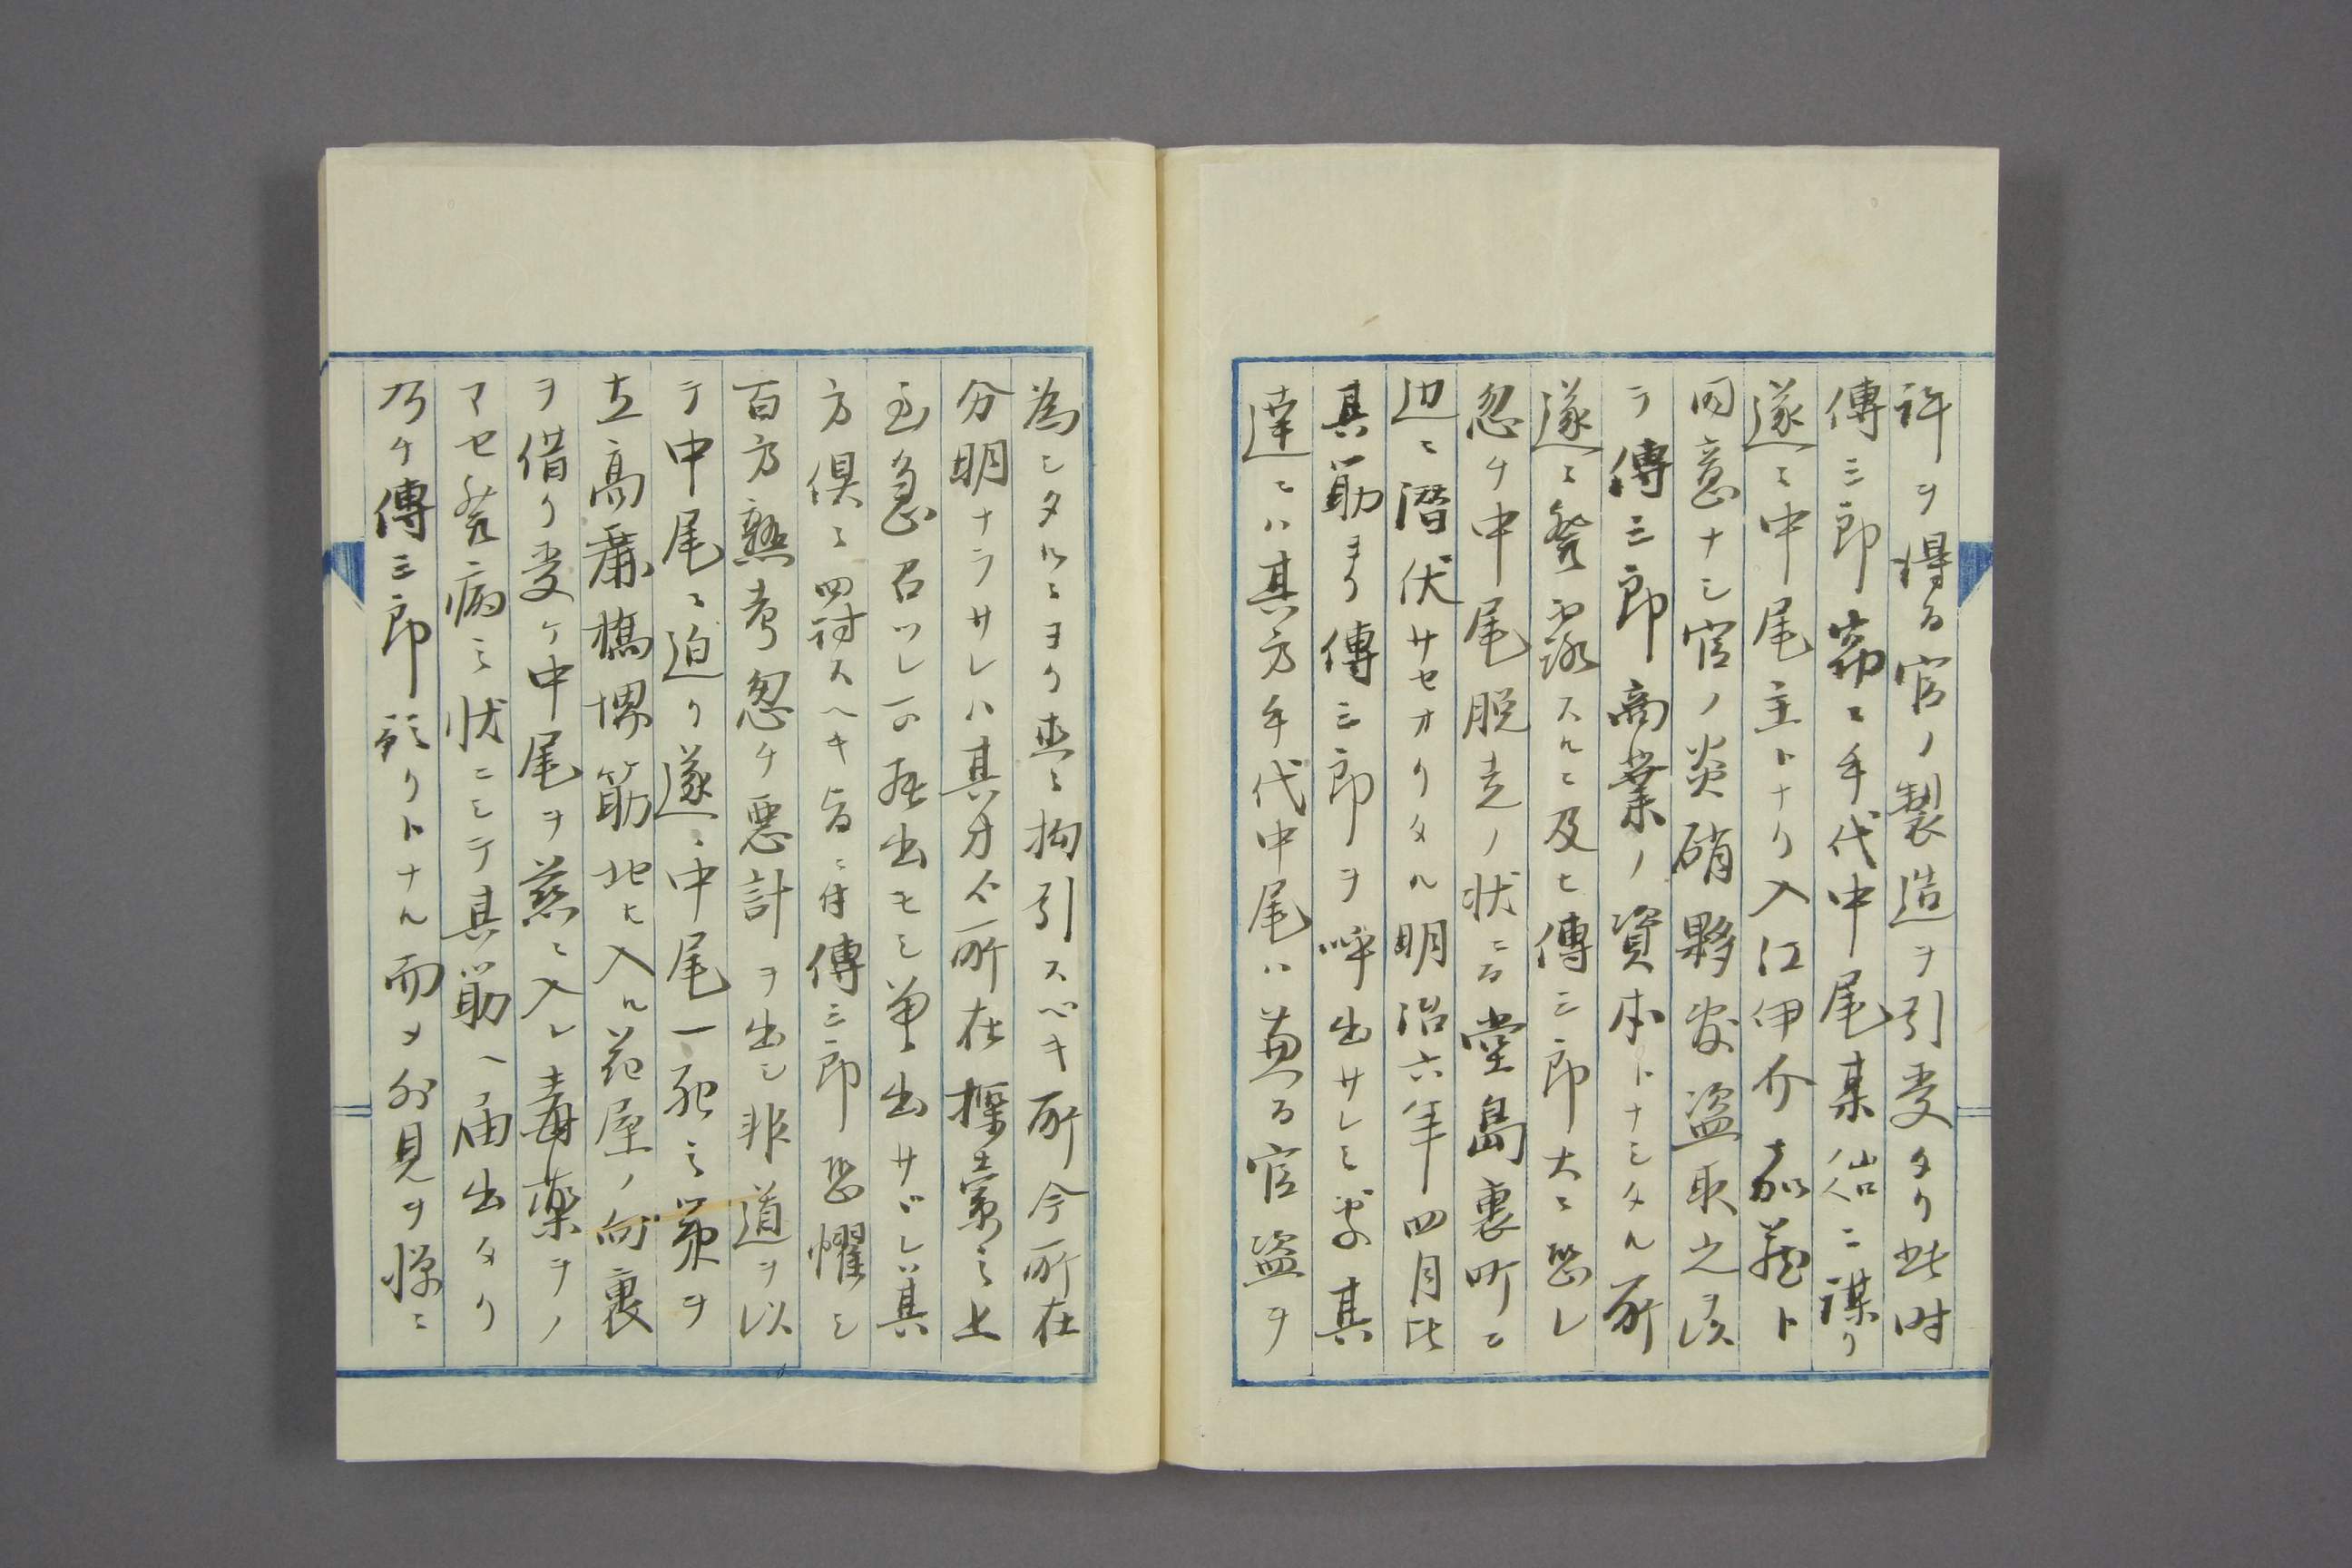 許ヲ得テ官ノ製造ヲ引受タリ此時
傳三郎窃ニ手代中尾某ニ謀リ
遂ニ中尾主トナリ入江伊介嘉蔵ト
同意ナシ官ノ炎硝夥多盗取之ヲ以
テ傳三郎商業ノ資本トナシタル所
遂ニ發露スルニ及ヒ傳三郎大ニ恐レ
忽チ中尾脱走ノ状ニテ堂島裏町ニ
辺ニ潜伏サセオリタル明治六年四月比
其筋ヨリ傳三郎ヲ呼出サレシ處其
達ニハ其方手代中尾ハ兼テ官盗ヲ
為シタルニヨリ直ニ拘引スベキ所今所在
分明ナラサレハ其方今所在探索之上
至急召ツレ可届出モシ召出サヾレハ其
方倶ニ罰スヘキ旨ニ付傳三郎恐懼シ
百方熟考忽チ悪計ヲ出シ非道ヲ以
テ中尾ニ迫リ遂ニ中尾一死之策ヲ
立高麗橋堺筋北ヘ入ル花屋ノ向裏
ヲ借リ受ケ中尾ヲ慈ニ入レ毒薬ヲノ
マセ發病之状ニシテ其筋ヘ届出タリ
乃チ傳三郎預リトナル而メ外見ヲ惇ニ